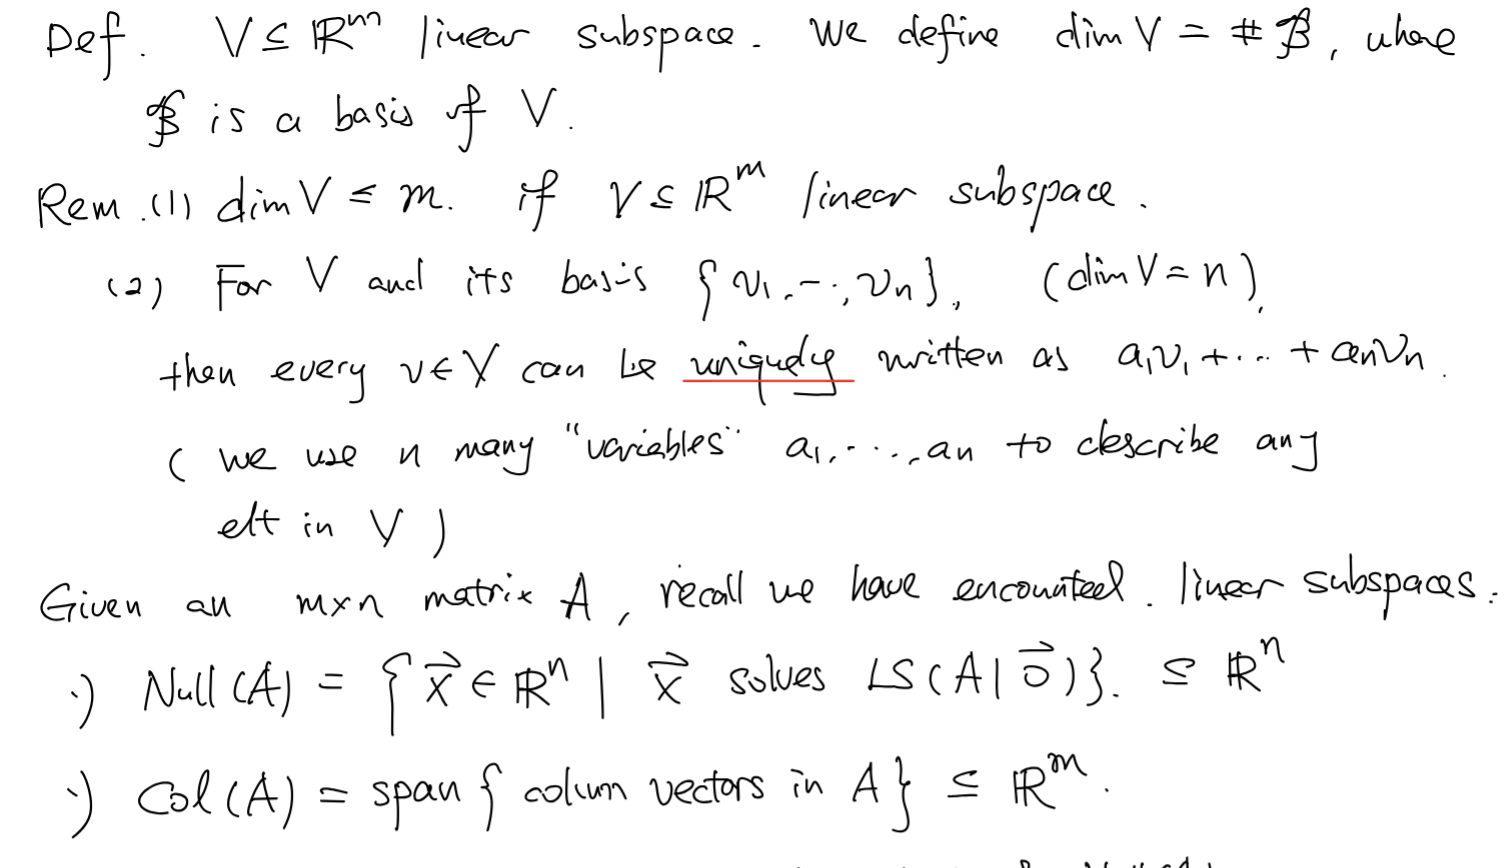 Def. V ⊆ ℝᵐ linear subspace. We define dim V = # ℬ, where
ℬ is a basis of V.
Rem. (1) dim V ≤ m. if V ⊆ ℝᵐ linear subspace.
(2) For V and its basis {v₁, ..., vₙ}, (dim V = n),
then every v ∈ V can be uniquely written as a₁v₁ + ... + aₙvₙ.
(we use n many "variables" a₁, ..., aₙ to describe any
elt in V)
Given an m×n matrix A, recall we have encounteed. linear subspaces:
·) Null(A) = {x⃗ ∈ ℝⁿ | x⃗ solves LS(A|0⃗)}. ⊆ ℝⁿ
·) Col(A) = span {colum vectors in A} ⊆ ℝᵐ.